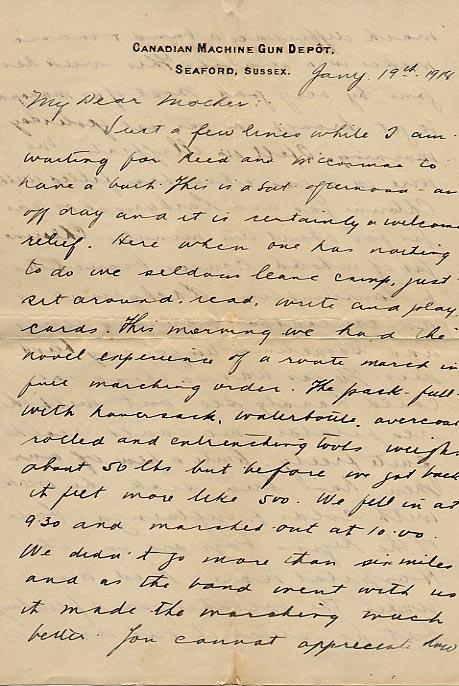 CANADIAN MACHINE GUN DEPÔT,
SEAFORD, SUSSEX.
Jany. 19th. 1918
My Dear Mother:
Just a few lines while I am
waiting for Reid and McCormac to
have a bath. This is a Sat. afternoon an
off day and it is certainly a welcome
relief. Here when one has nothing
to do we seldom leave camp, just
sit around, read, write and play
cards. This morning we had the
novel experience of a route march in
full marching order. The pack full
with haversack, waterbottle, overcoat
rolled and entrenching tools weigh
about 50 lbs but before we got back
it felt more like 500. We fell in at
9.30 and marched out at 10.00.
We didn't go more than six miles
and as the band went with us
it made the marching much
better. You cannot appreciate how